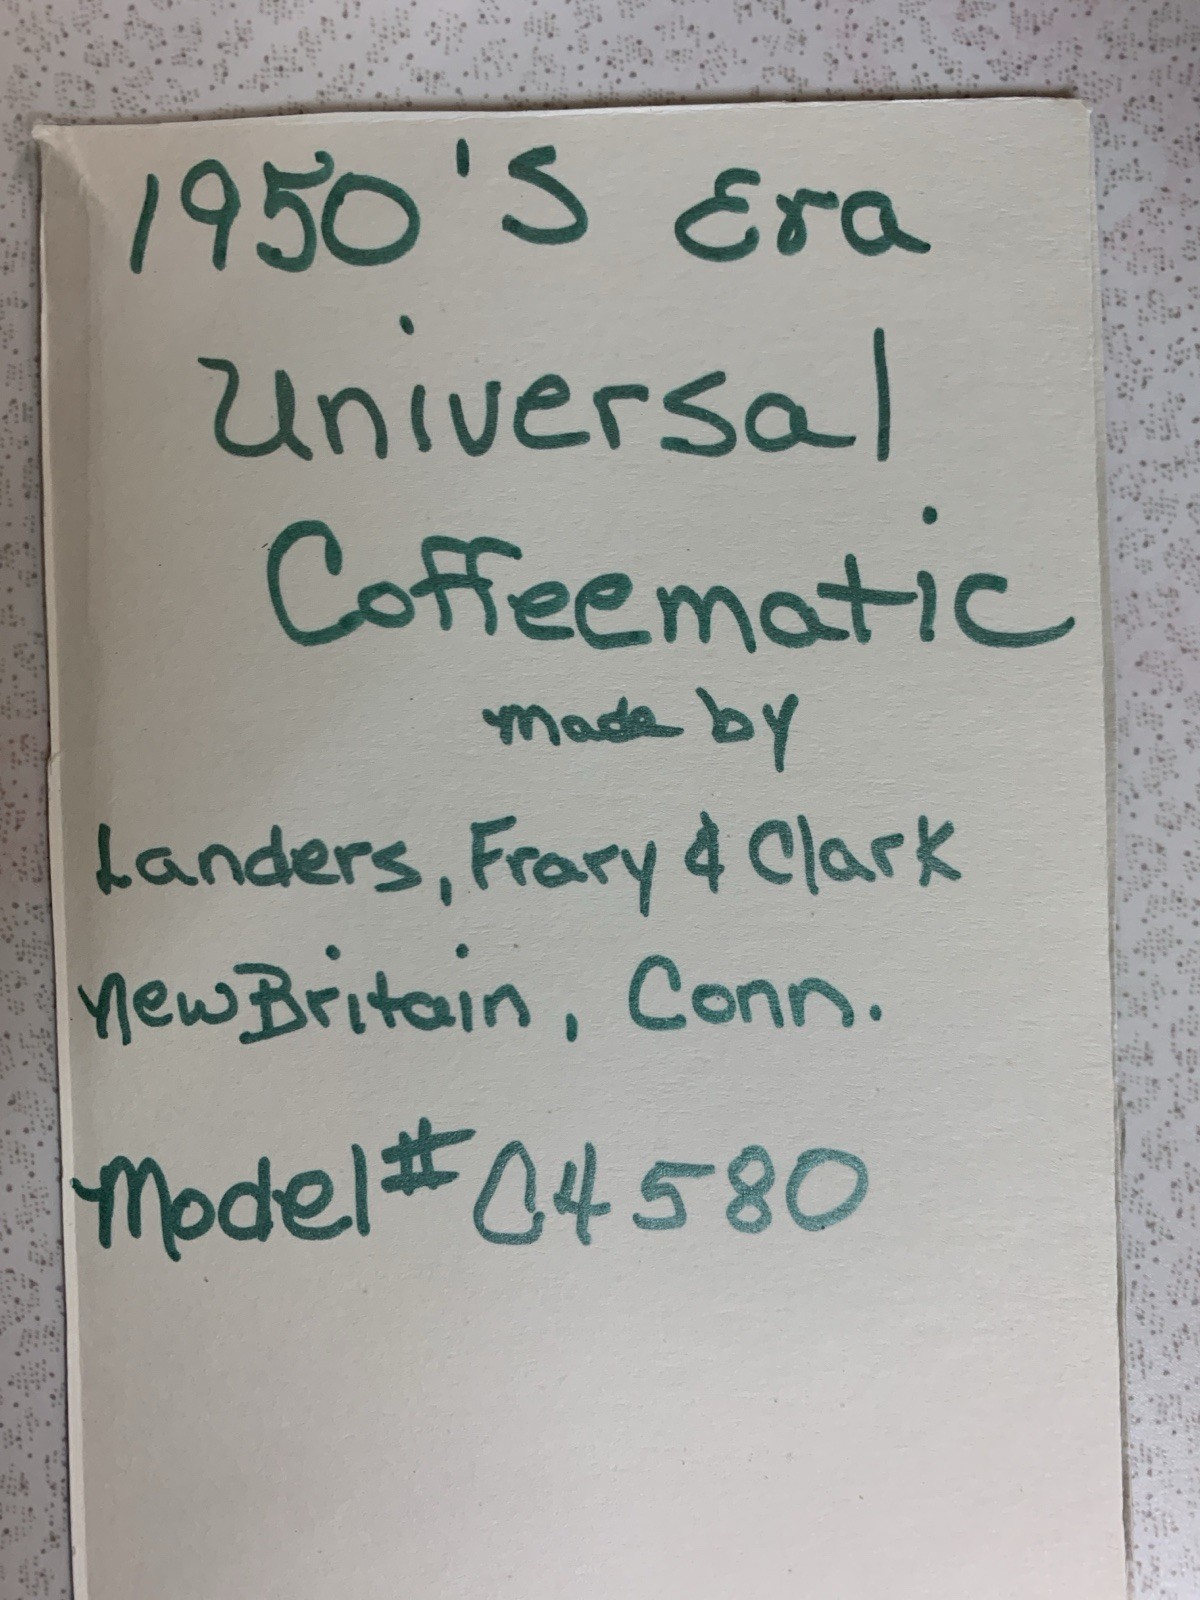 1950's Era
Universal
Coffeematic
made by
Landers, Frary & Clark
New Britain, Conn.
Model # C4580